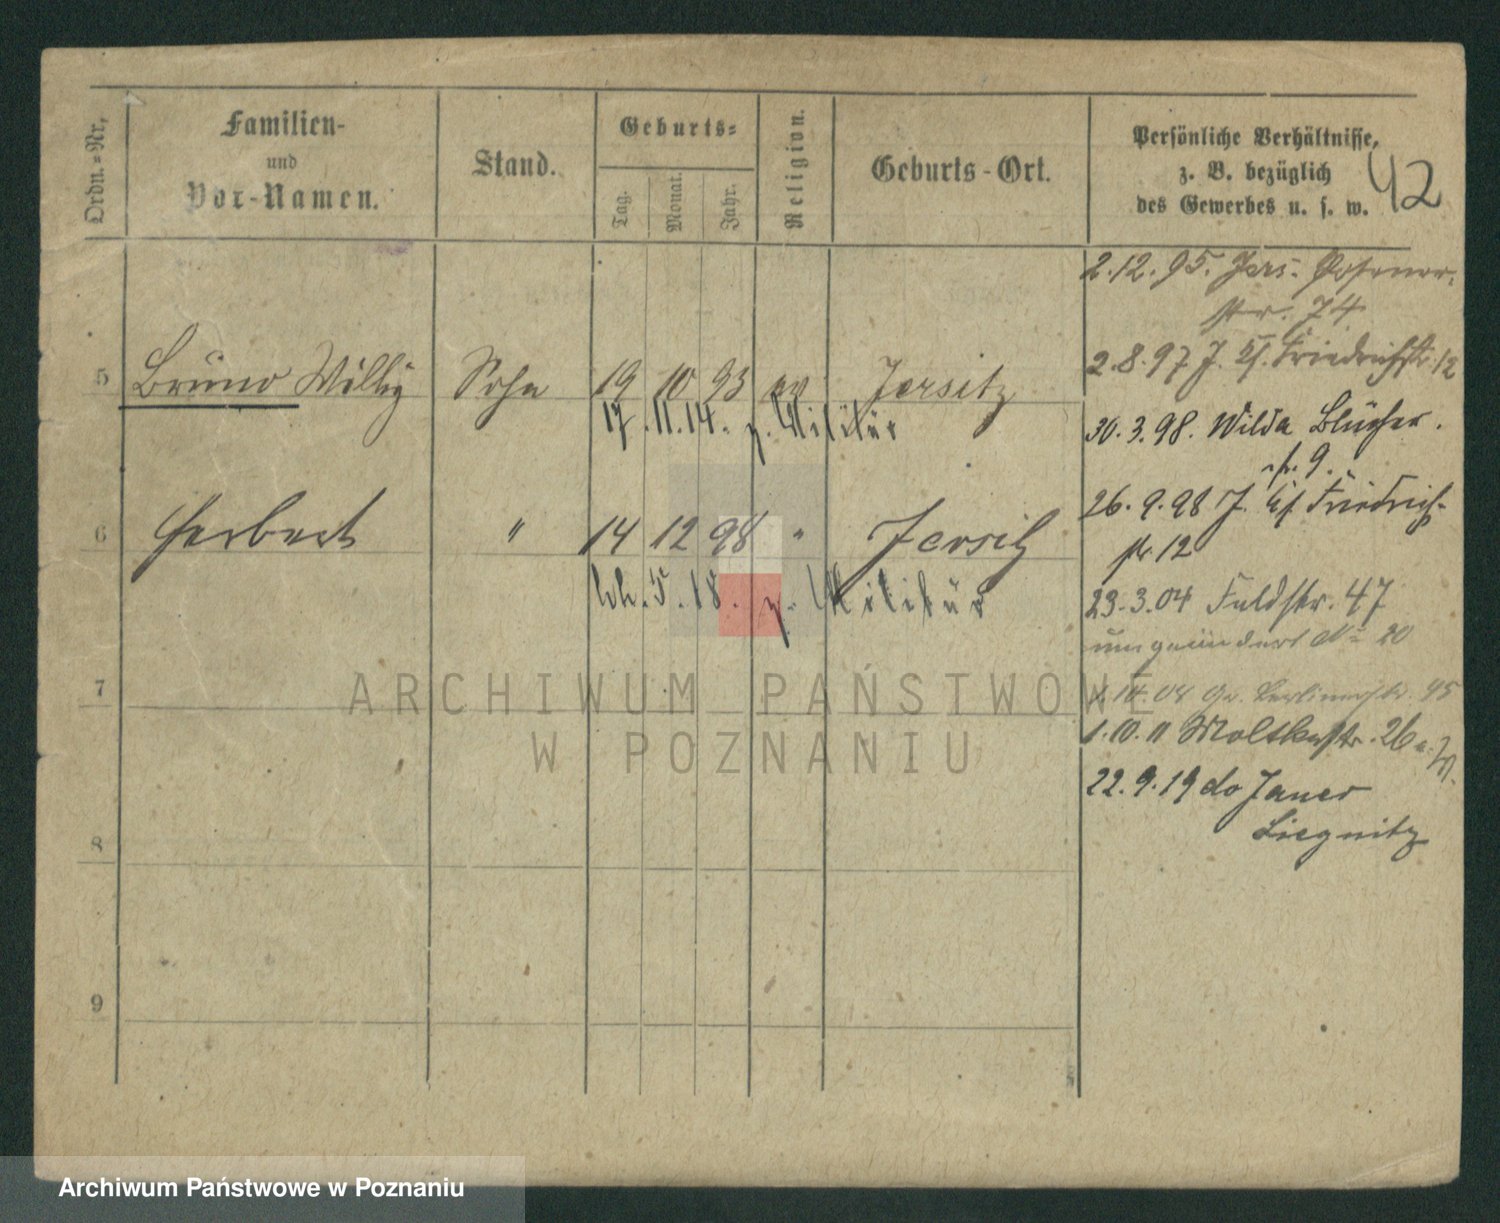 Ordn.=Nr.
Familien-
und
Vor-Namen.
Stand.
Geburts=
Tag.
Monat.
Jahr.
Religion.
Geburts-Ort.
Persönliche Verhältnisse,
z. B. bezüglich
des Gewerbes u. s. w.
42
2.12.95. Jers. Posener-
str. 74
2.8.97 J. Friedrichstr. 12
5 Bruno Willy Sohn 19 10 93 ev Jersitz
17.11.14. z. Militär
30.3.98. Wilda Blücher.
str. 9.
26.9.98 J. Friedrich-
str 12
6 Herbert " 14 12 98 " Jersitz
5.18. z. Militär
23.3.04 Feldstr. 47
umgeändert No 20
ARCHIWUM PAŃSTWOWE
W POZNANIU
7
04 Gr. Berlinerstr. 45
1.10.11 Moltkestr. 26
22.9.19 do Jauer
Liegnitz
8
9
Archiwum Państwowe w Poznaniu